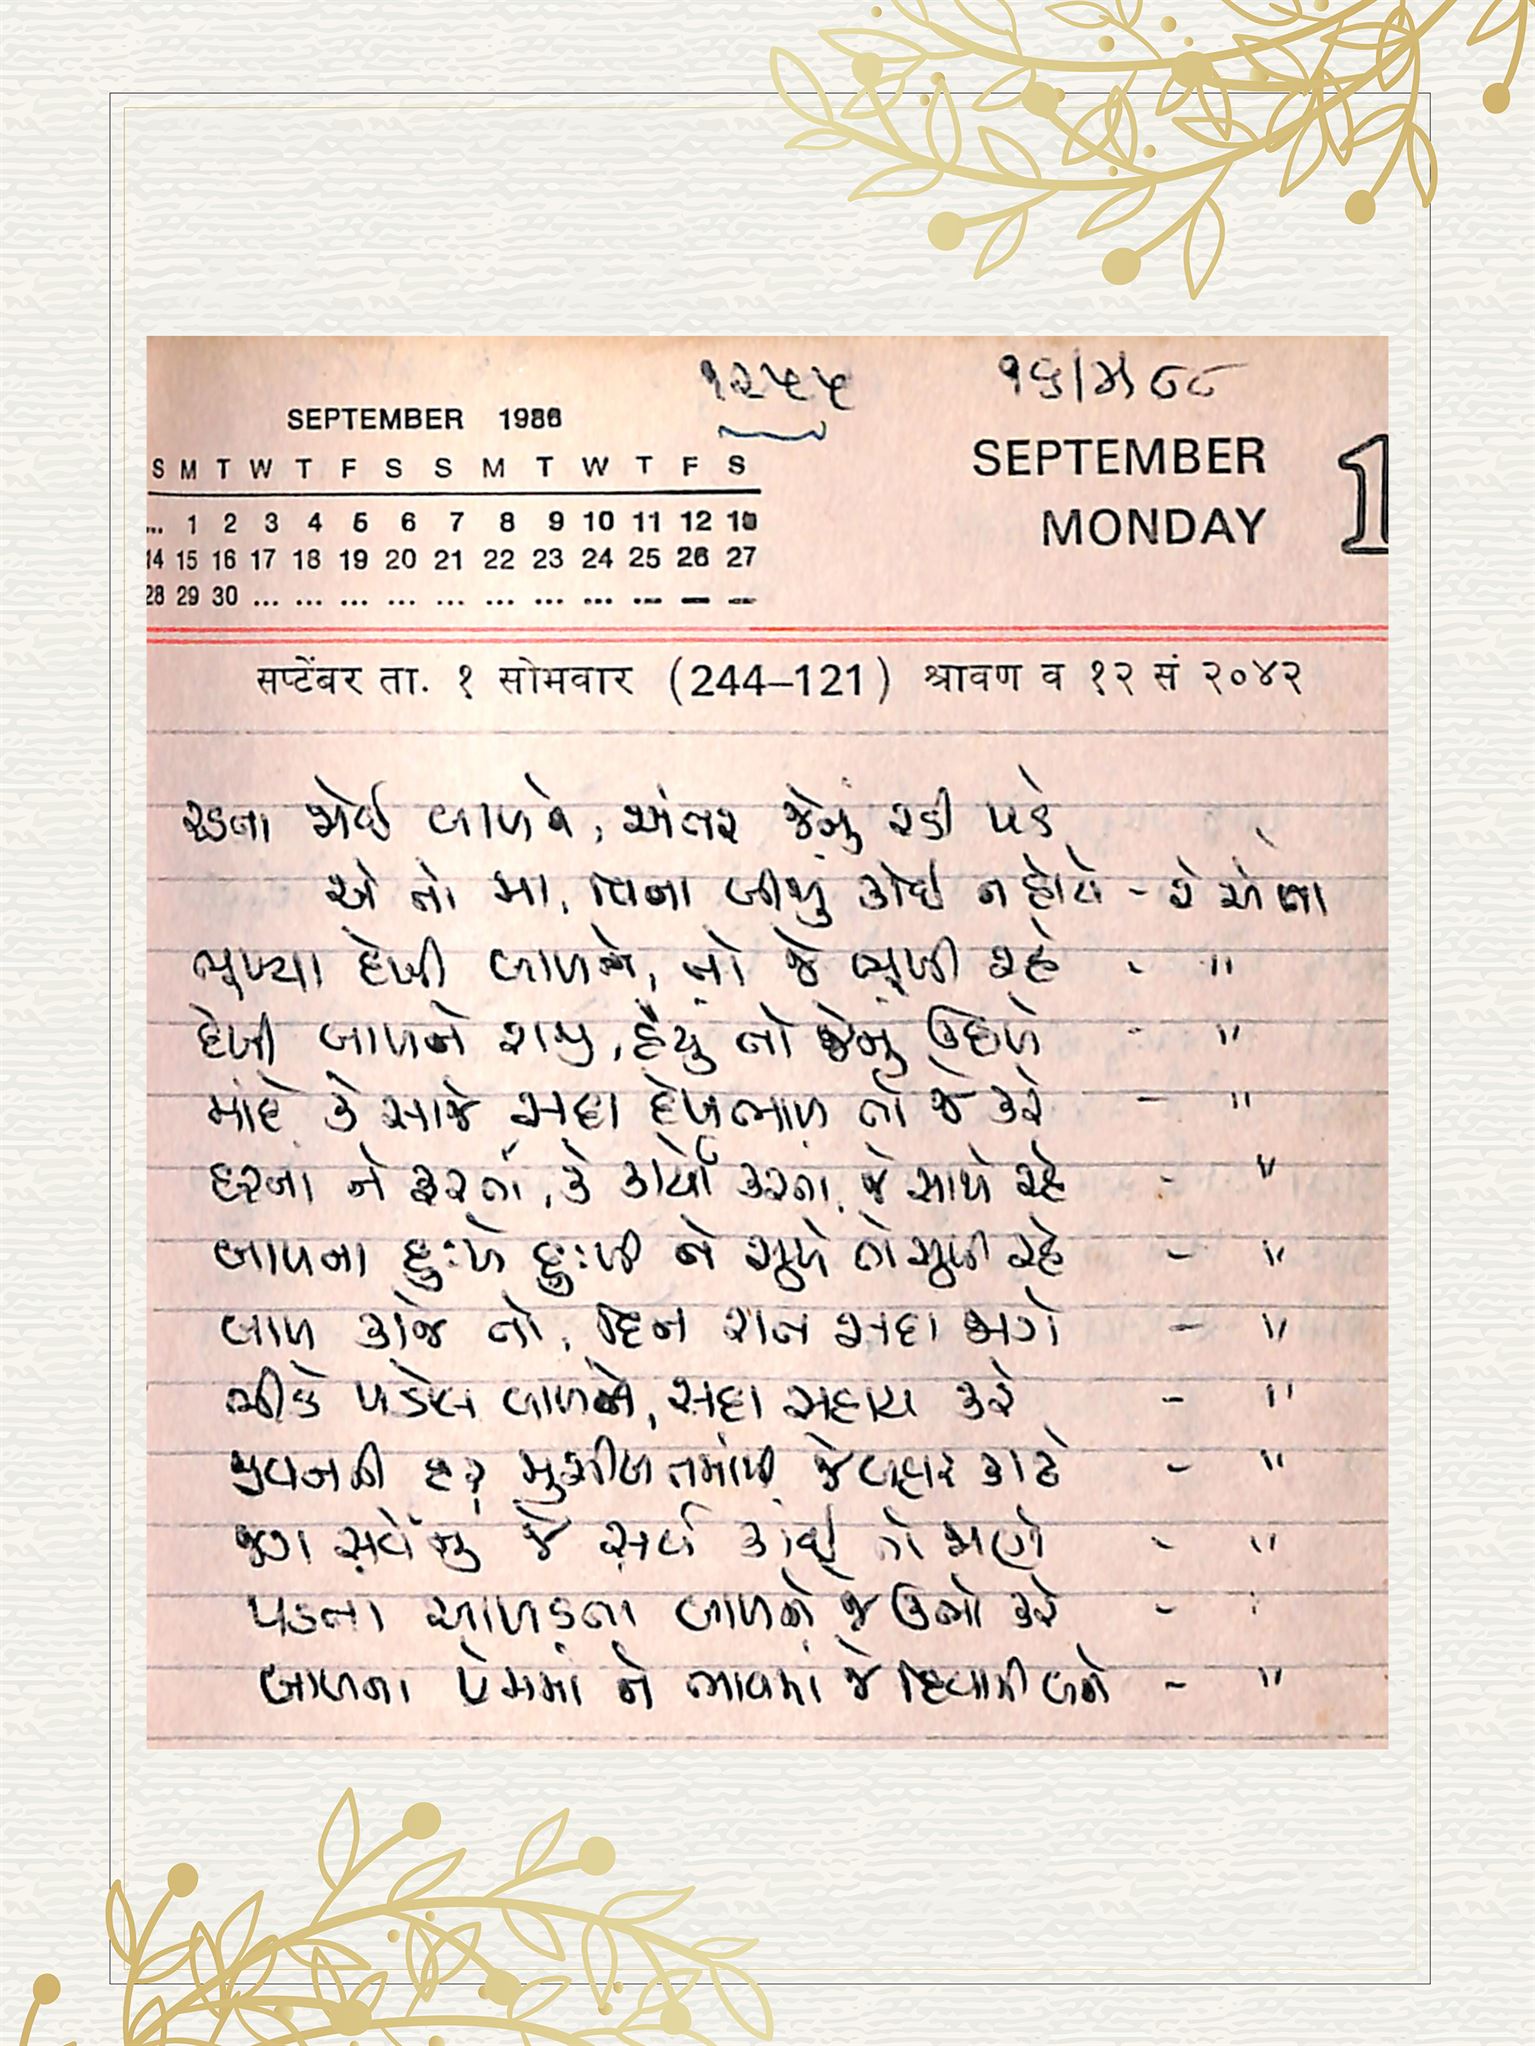 ૧૨૫૫
૧૬/૫/૮૮
SEPTEMBER 1986
S M T W T F S S M T W T F S
... 1 2 3 4 5 6 7 8 9 10 11 12 13
14 15 16 17 18 19 20 21 22 23 24 25 26 27
28 29 30 ... ... ... ... ... ... ... ... ... ... ...
SEPTEMBER
MONDAY
1
सप्टेंबर ता. १ सोमवार (244–121) श्रावण व १२ सं २०४२
રડતા જોઈ બાળને, અંતર જેનું રડી પડે
એ તો મા, વિના બીજું કોઈ ન હોયે - રે એ તો
ભૂખ્યા દેખી બાળને, તો જે ભૂખી રહે - "
દેખી બાળને રાજી, હૈયું તો જેનું ઉછળે - "
માંદે કે સાજે સદા દેખભાળ તો જે કરે - "
હરતાં ને ફરતાં, કે કાર્યો કરતા જે સાથે રહે - "
બાળના દુઃખે દુઃખી ને સુખે તો સુખી રહે - "
બાળ કાજે તો, દિન રાત સદા જાગે - "
ભીડે પડેલ બાળને, સદા સહાય કરે - "
જીવનની હર મુશ્કેલીમાંથી જે બહાર કાઢે - "
જગ સર્વેનું જે સર્વ કાંઈ તો જાણે - "
પડતા આખડતા બાળને જે ઉભો કરે - "
બાળના પ્રેમમાં ને ભાવમાં જે દિવાની બને - "